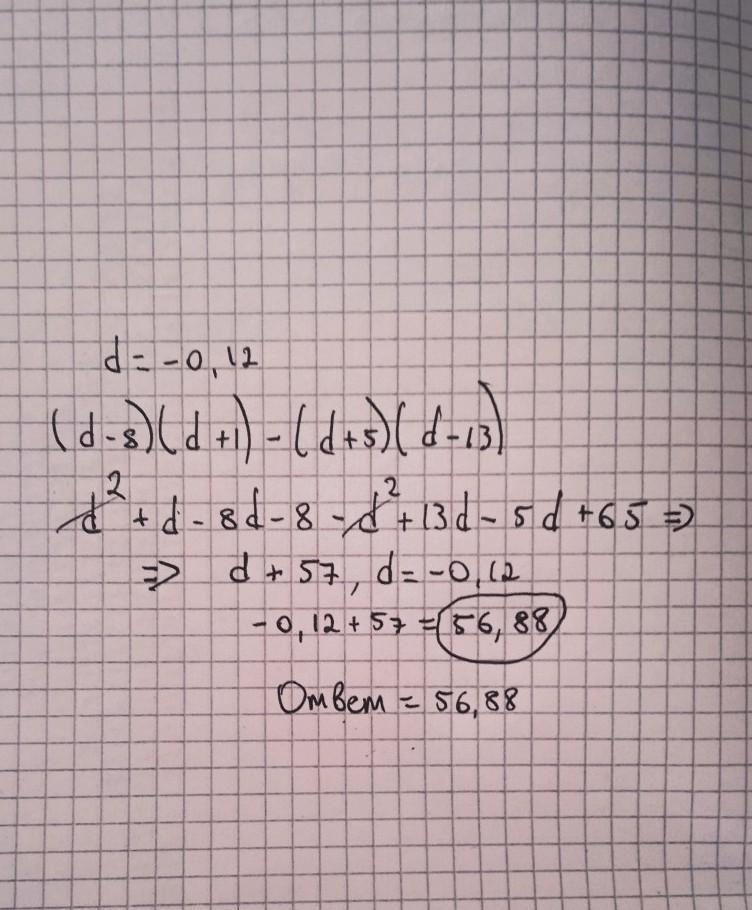 d = -0,12
(d-8)(d+1) - (d+5)(d-13)
d² + d - 8d - 8 - d² + 13d - 5d + 65 ⇒
⇒ d + 57, d = -0,12
-0,12 + 57 = 56,88
Ответ = 56,88